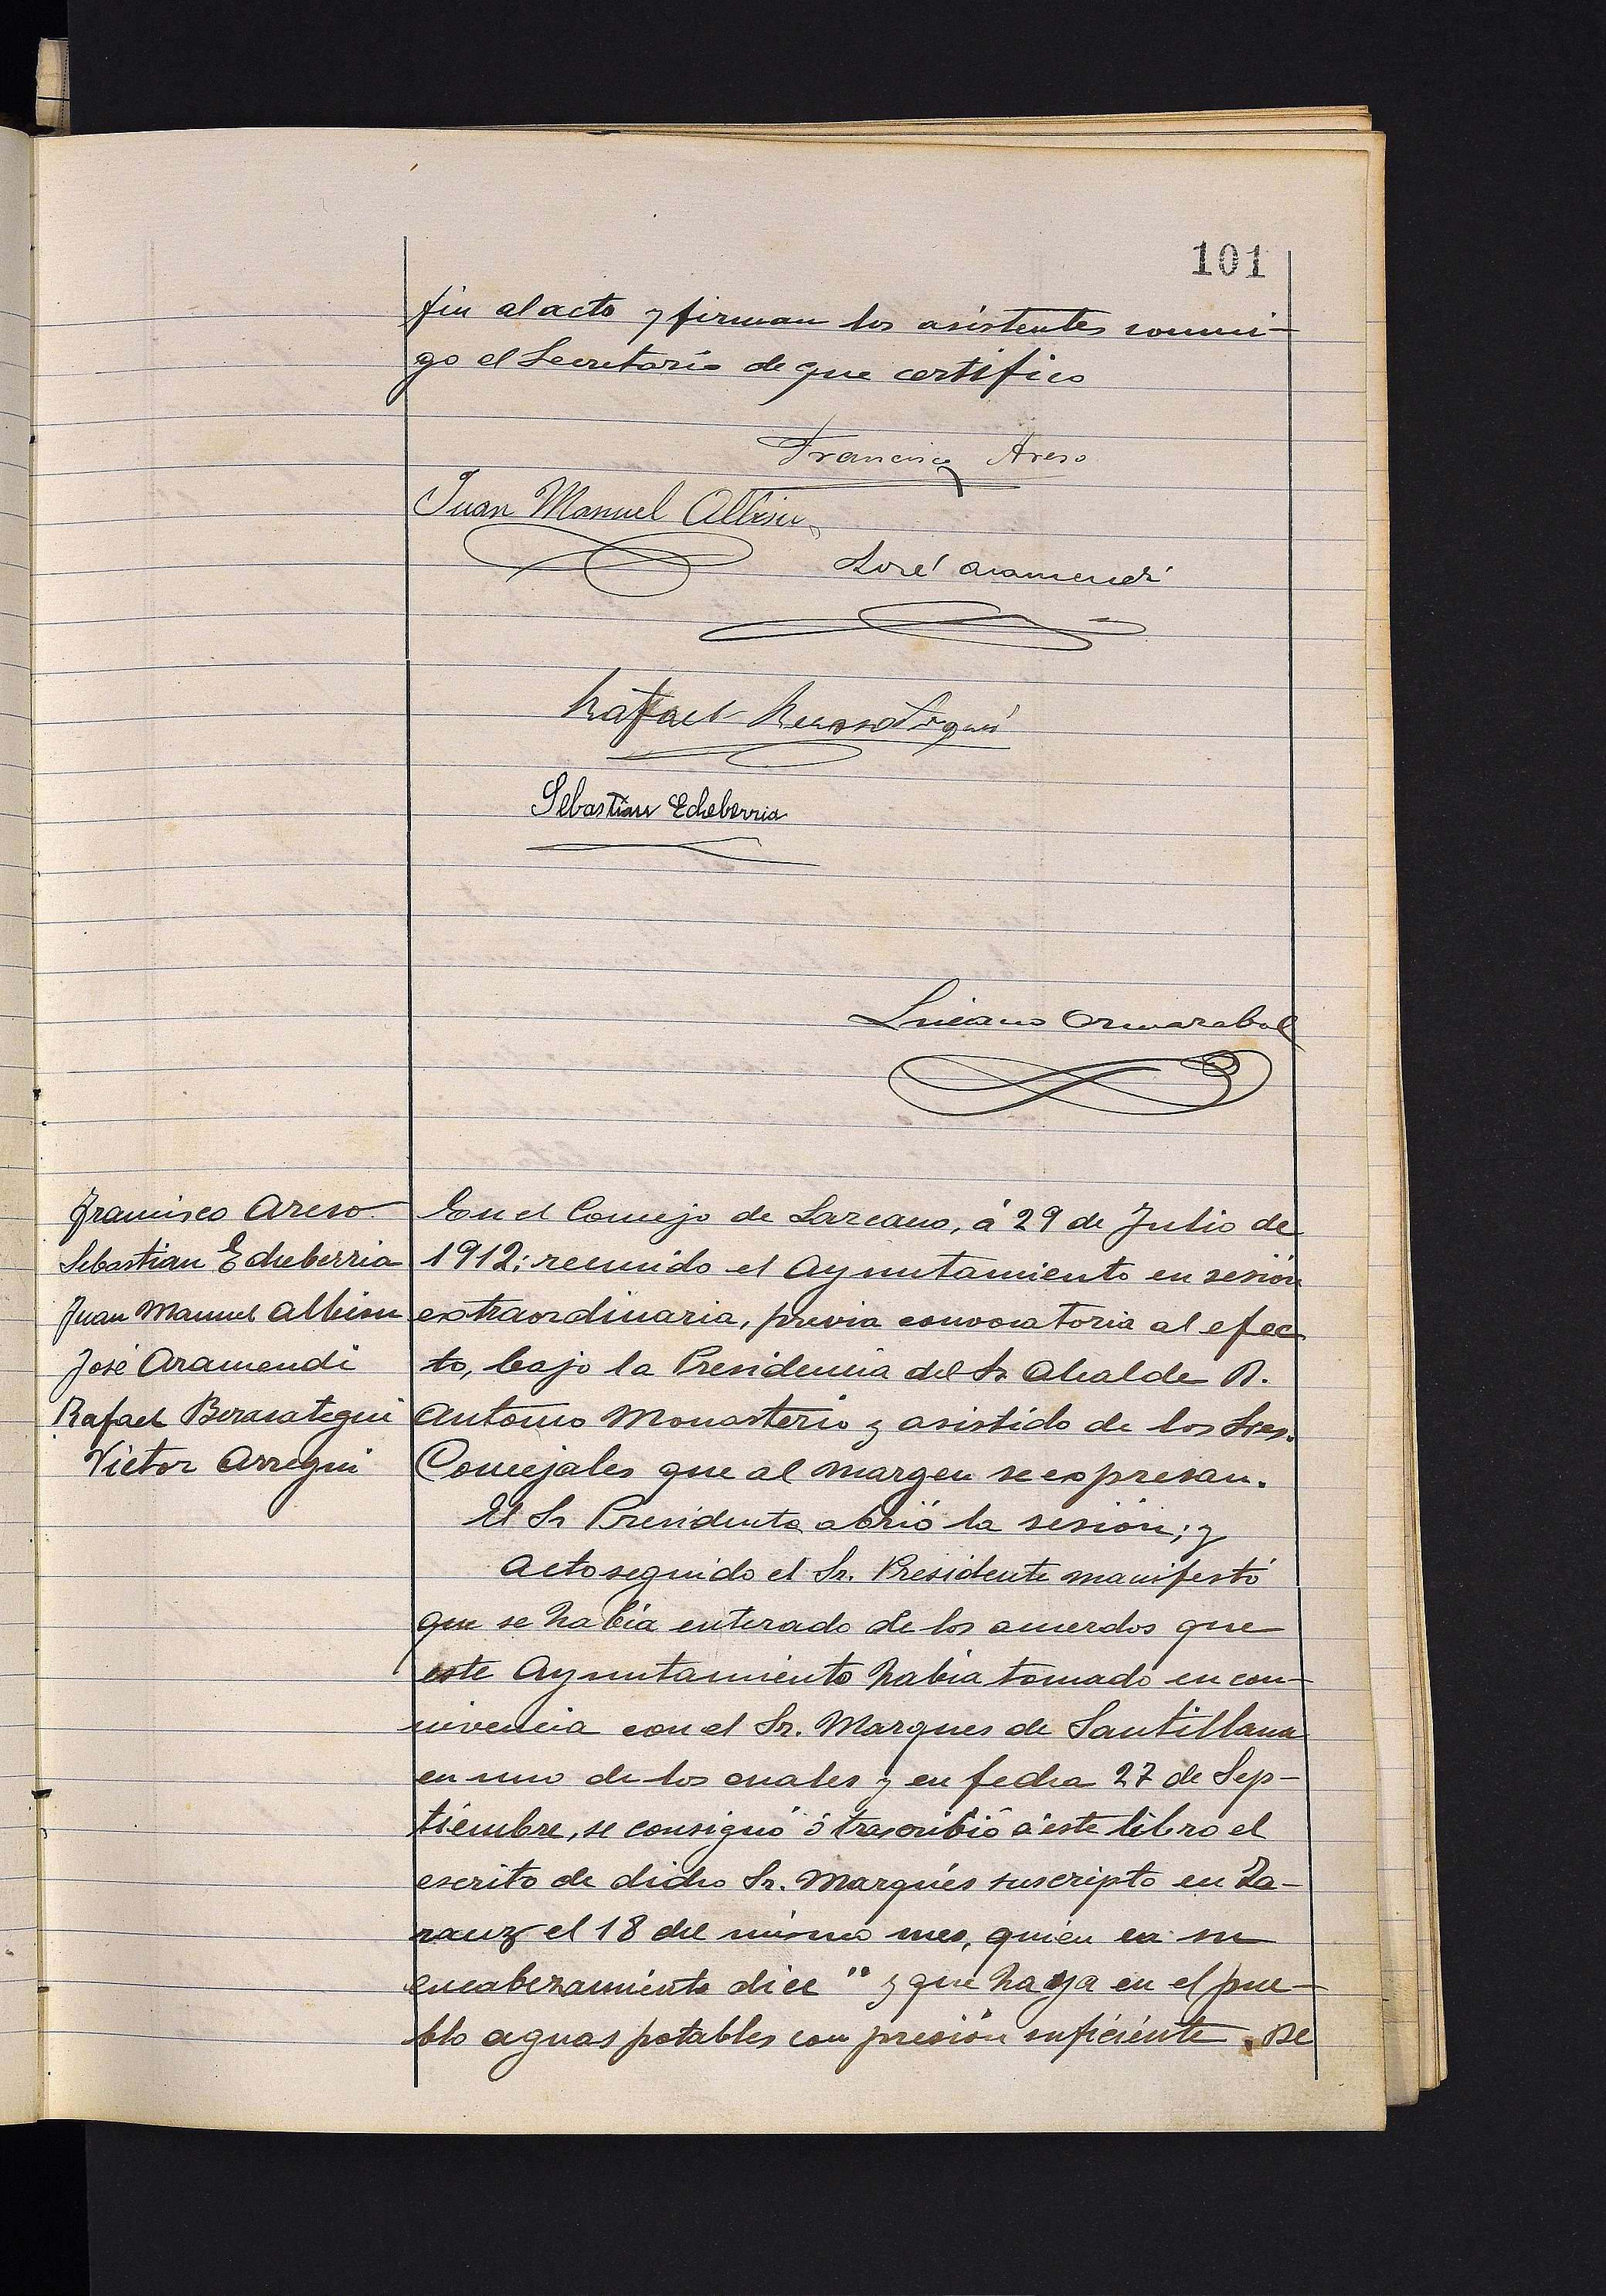 101
fin al acto y firman los asistentes conmi-
go el Secretario de que certifico
Francisco Areso
Juan Manuel Albisu
José Aramendi
Rafael Berasategui
Sebastian Echeberria
Luciano Ormazabal
Francisco Areso
Sebastian Echeberria
Juan Manuel Albisu
José Aramendi
Rafael Berasategui
Victor Arregui
En el Concejo de Lazcano, á 29 de Julio de
1912; reunido el Ayuntamiento en sesión
extraordinaria, previa convocatoria al efec
to, bajo la Presidencia del Sr. Alcalde D.
Antonio Monasterio y asistido de los Sres.
Concejales que al margen se expresan.
El Sr Presidente abrió la sesión; y
Acto seguido el Sr. Presidente manifestó
que se habia enterado de los acuerdos que
este Ayuntamiento habia tomado en con-
nivencia con el Sr. Marques de Santillana
en uno de los cuales y en fecha 27 de Sep-
tiembre, se consignó ó trascribió á este libro el
escrito de dicho Sr. Marqués suscripto en Za-
rauz el 18 del mismo mes, quien en su
encabezamiento dice " y que haya en el pue-
blo aguas potables con presión suficiente. De